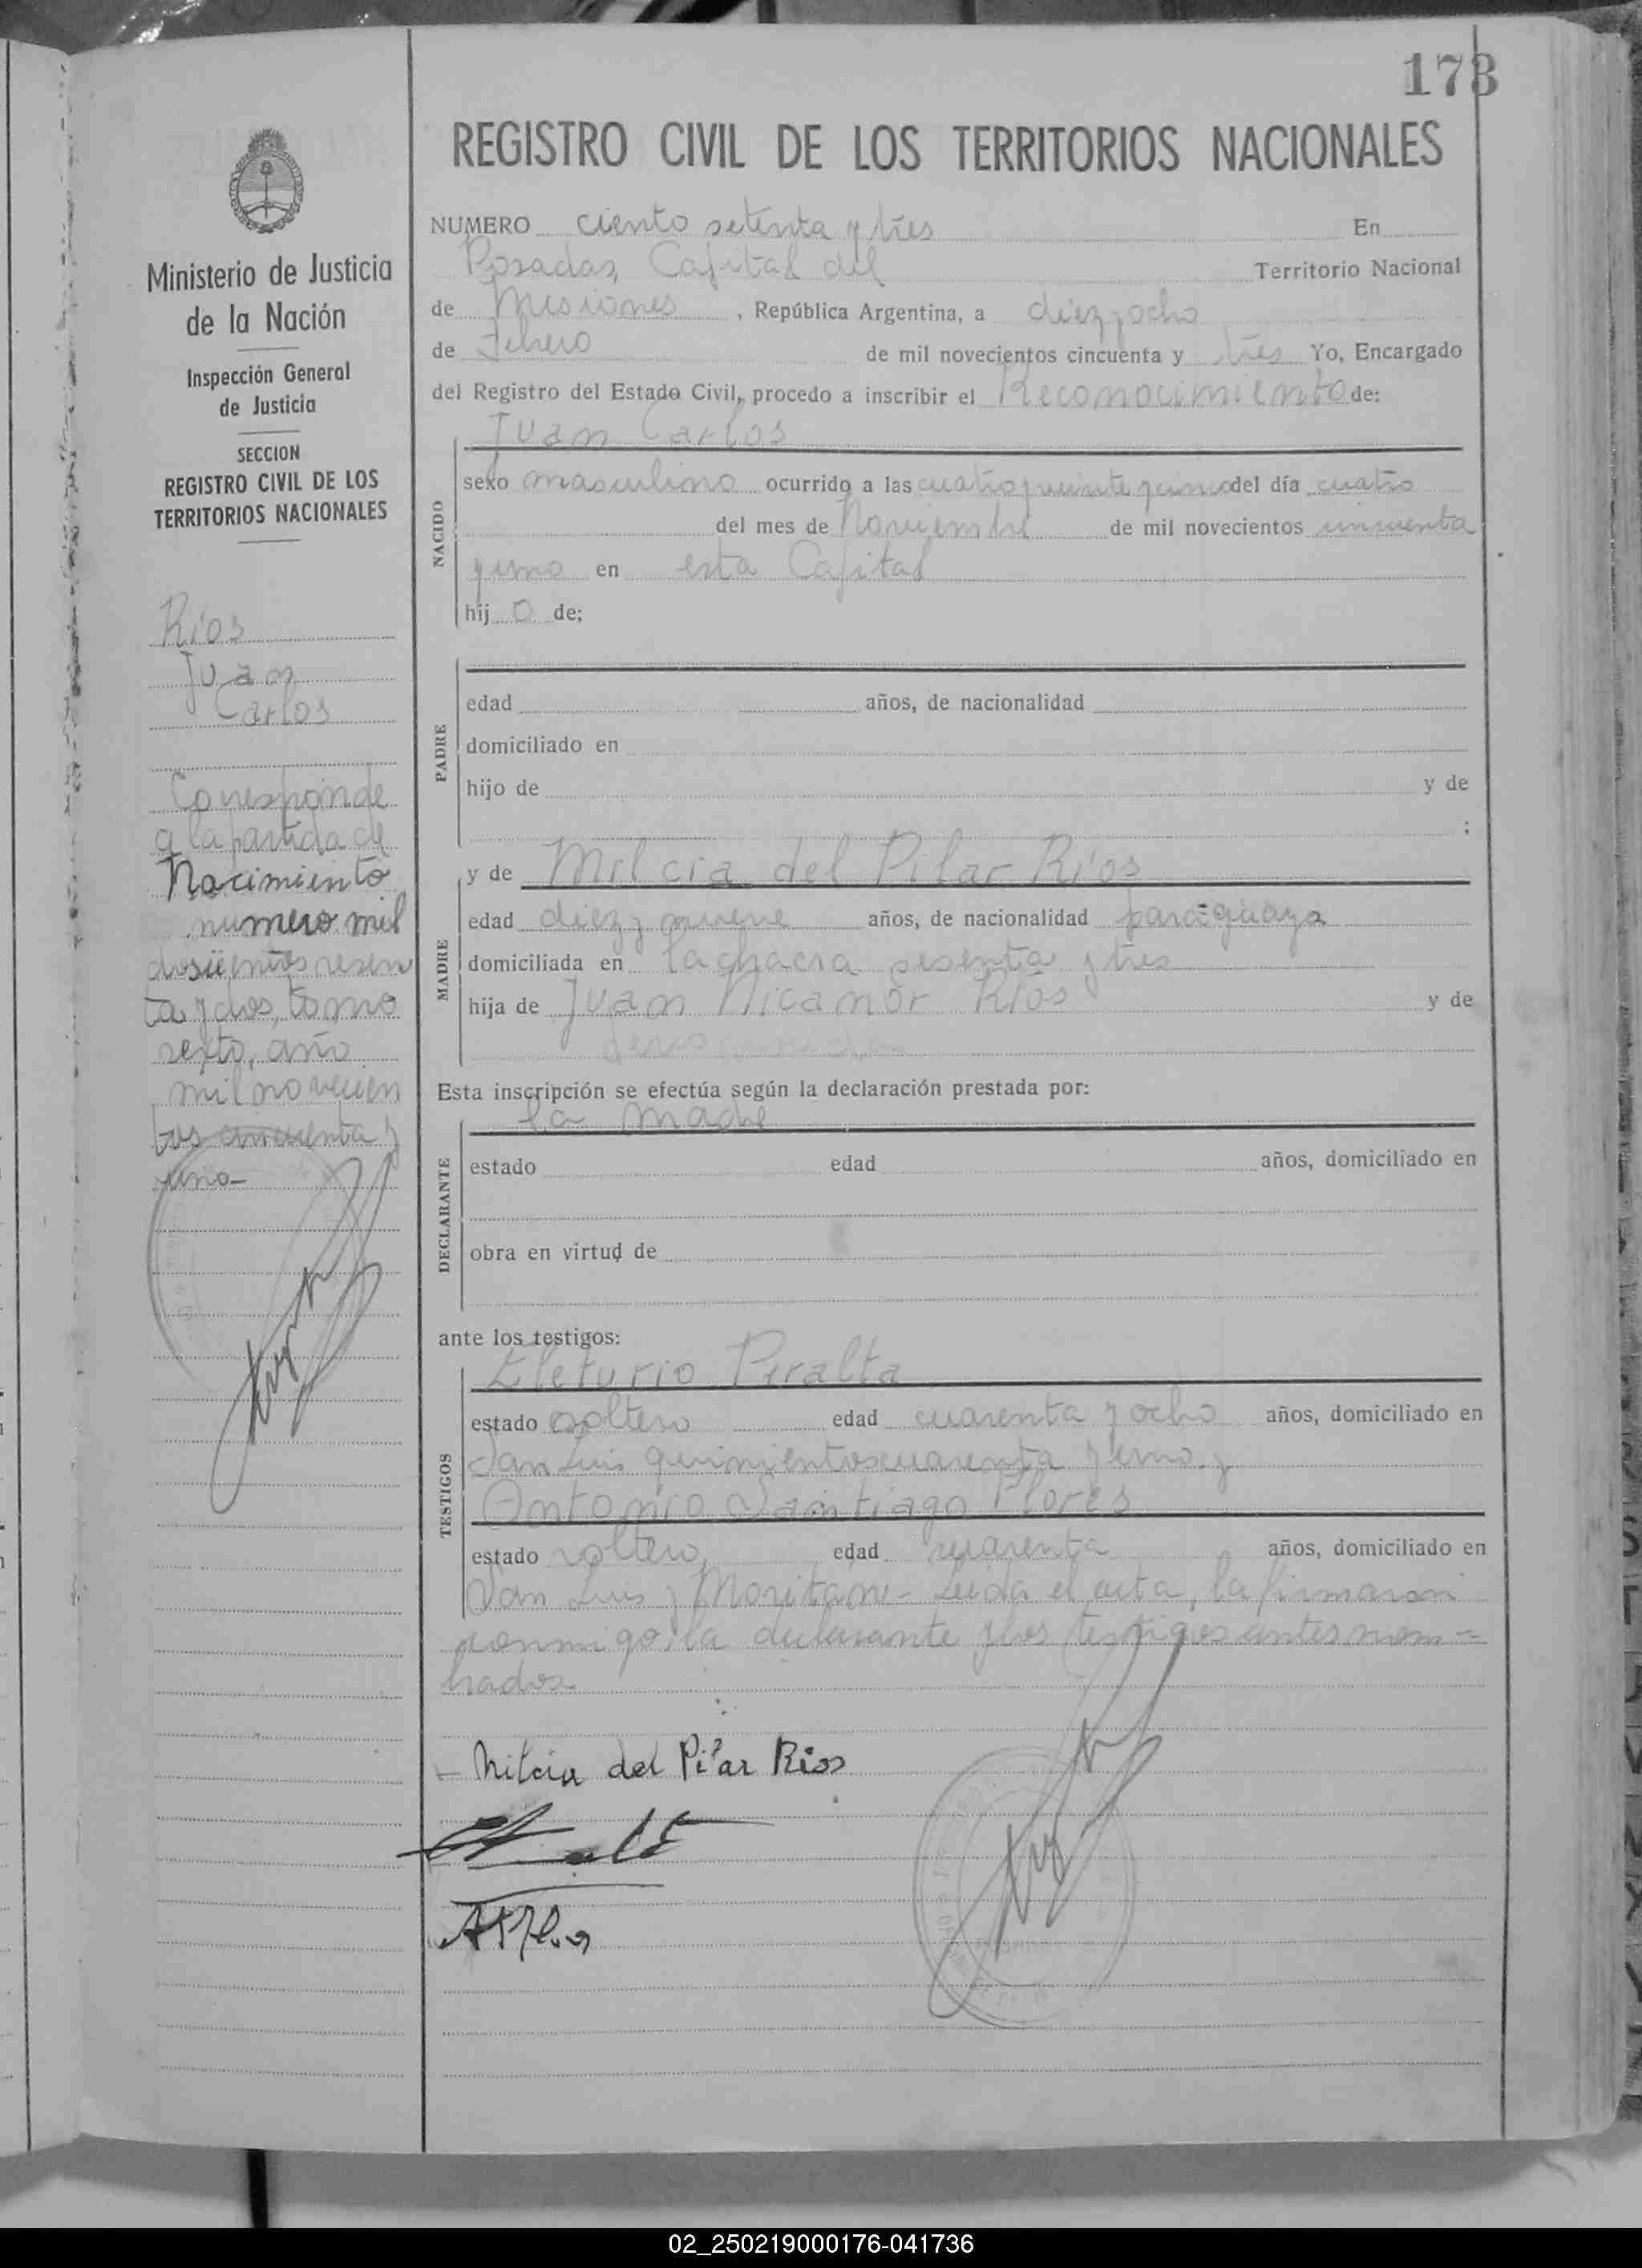 173
REGISTRO CIVIL DE LOS TERRITORIOS NACIONALES
Ministerio de Justicia
de la Nación
Inspección General
de Justicia
SECCION
REGISTRO CIVIL DE LOS
TERRITORIOS NACIONALES
Ríos
Juan
Carlos
Corresponde
a la partida de
Nacimiento
numero mil
doscientos sesen
ta y dos, tomo
sexto, año
mil novecien
tos cincuenta y
uno-
NUMERO ciento setenta y tres En
Posadas, Capital del Territorio Nacional
de Misiones, República Argentina, a diez y ocho
de Febrero de mil novecientos cincuenta y tres Yo, Encargado
del Registro del Estado Civil, procedo a inscribir el Reconocimiento de:
Juan Carlos
NACIDO
sexo masculino ocurrido a las cuatro y veinte y cinco del día cuatro
del mes de Noviembre de mil novecientos cincuenta
y uno en esta Capital
hij o de;
PADRE
edad años, de nacionalidad
domiciliado en
hijo de y de
;
y de Milcia del Pilar Ríos
MADRE
edad diez y nueve años, de nacionalidad paraguaya
domiciliada en la chacra sesenta y tres
hija de Juan Nicanor Ríos y de
Esta inscripción se efectúa según la declaración prestada por:
la madre
DECLARANTE
estado edad años, domiciliado en
obra en virtud de
ante los testigos:
Eleturio Peralta
TESTIGOS
estado soltero edad cuarenta y ocho años, domiciliado en
San Luis quinientos cuarenta y uno y
Antonio Santiago Flores
estado soltero, edad cuarenta años, domiciliado en
San Luis y Moritan- Leida el acta, la firmaron
conmigo, la declarante y los testigos antes nom=
brados
Milcia del Pilar Rios
02_250219000176-041736